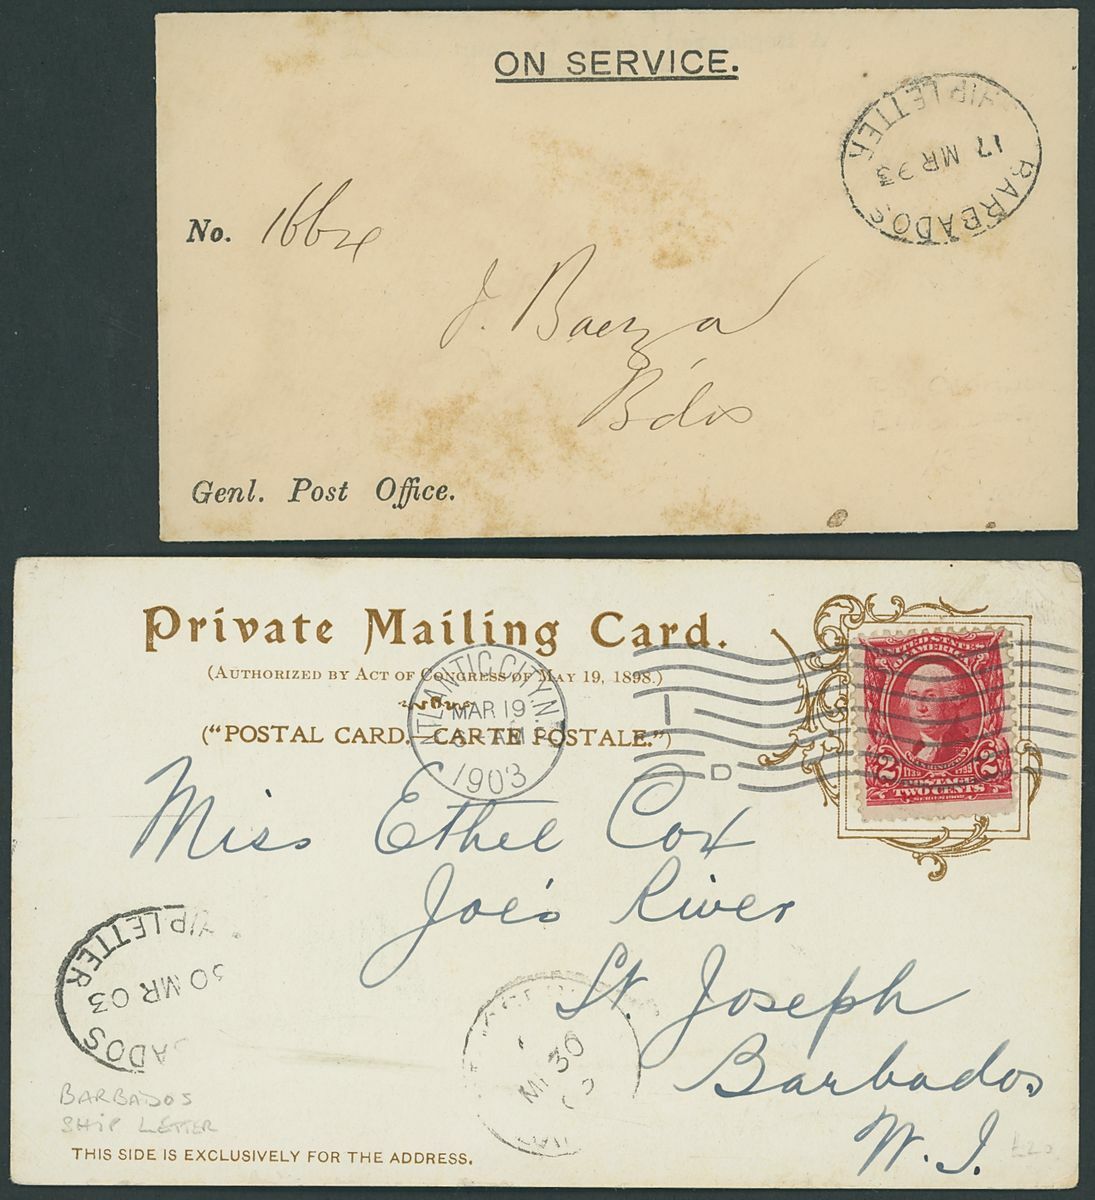 ON SERVICE.
SHIP LETTER
17 MR 93
BARBADOS
No.
J. Baeza
B'dos
Genl. Post Office.
Private Mailing Card.
(AUTHORIZED BY ACT OF CONGRESS OF MAY 19, 1898.)
("POSTAL CARD.—CARTE POSTALE.")
ATLANTIC CITY, N.
MAR 19
1903
D
UNITED STATES
OF AMERICA
WASHINGTON
1732 1799
2 POSTAGE 2
TWO CENTS
SERIES 1902
Miss Ethel Cox
Joe's River
St. Joseph
Barbados
W. I.
HIP LETTER
30 MR 03
ADOS
30
BARBADOS
SHIP LETTER
£20
THIS SIDE IS EXCLUSIVELY FOR THE ADDRESS.